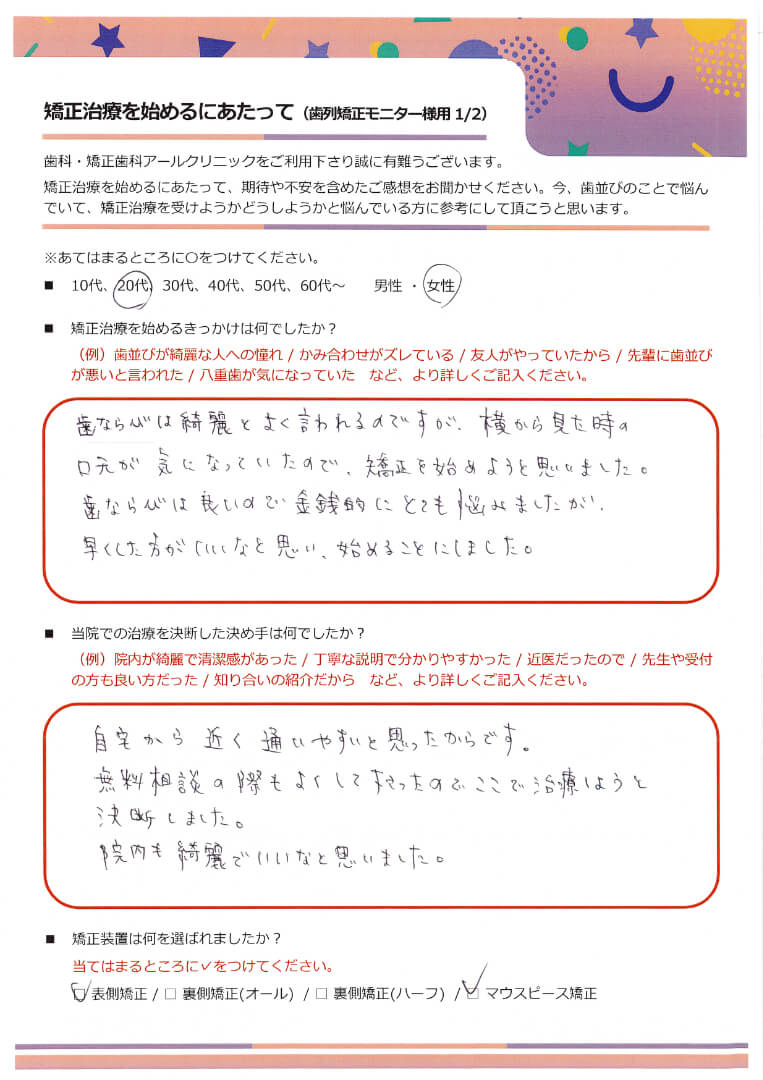 矯正治療を始めるにあたって（歯列矯正モニター様用 1/2）
歯科・矯正歯科アールクリニックをご利用下さり誠に有難うございます。
矯正治療を始めるにあたって、期待や不安を含めたご感想をお聞かせください。今、歯並びのことで悩ん
でいて、矯正治療を受けようかどうしようかと悩んでいる方に参考にして頂こうと思います。
※あてはまるところに〇をつけてください。
■ 10代、20代、30代、40代、50代、60代～ 男性 ・ 女性
■ 矯正治療を始めるきっかけは何でしたか？
（例）歯並びが綺麗な人への憧れ / かみ合わせがズレている / 友人がやっていたから / 先輩に歯並び
が悪いと言われた / 八重歯が気になっていた など、より詳しくご記入ください。
歯ならびは綺麗とよく言われるのですが、横から見た時の
口元が気になっていたので、矯正を始めようと思いました。
歯ならびは良いので金銭的にとても悩みましたが、
早くした方がいいなと思い、始めることにしました。
■ 当院での治療を決断した決め手は何でしたか？
（例）院内が綺麗で清潔感があった / 丁寧な説明で分かりやすかった / 近医だったので / 先生や受付
の方も良い方だった / 知り合いの紹介だから など、より詳しくご記入ください。
自宅から近く通いやすいと思ったからです。
無料相談の際もよくして下さったのでここで治療しようと
決断しました。
院内も綺麗でいいなと思いました。
■ 矯正装置は何を選ばれましたか？
当てはまるところに✓をつけてください。
☑ 表側矯正 / □ 裏側矯正(オール) / □ 裏側矯正(ハーフ) / ☑ マウスピース矯正